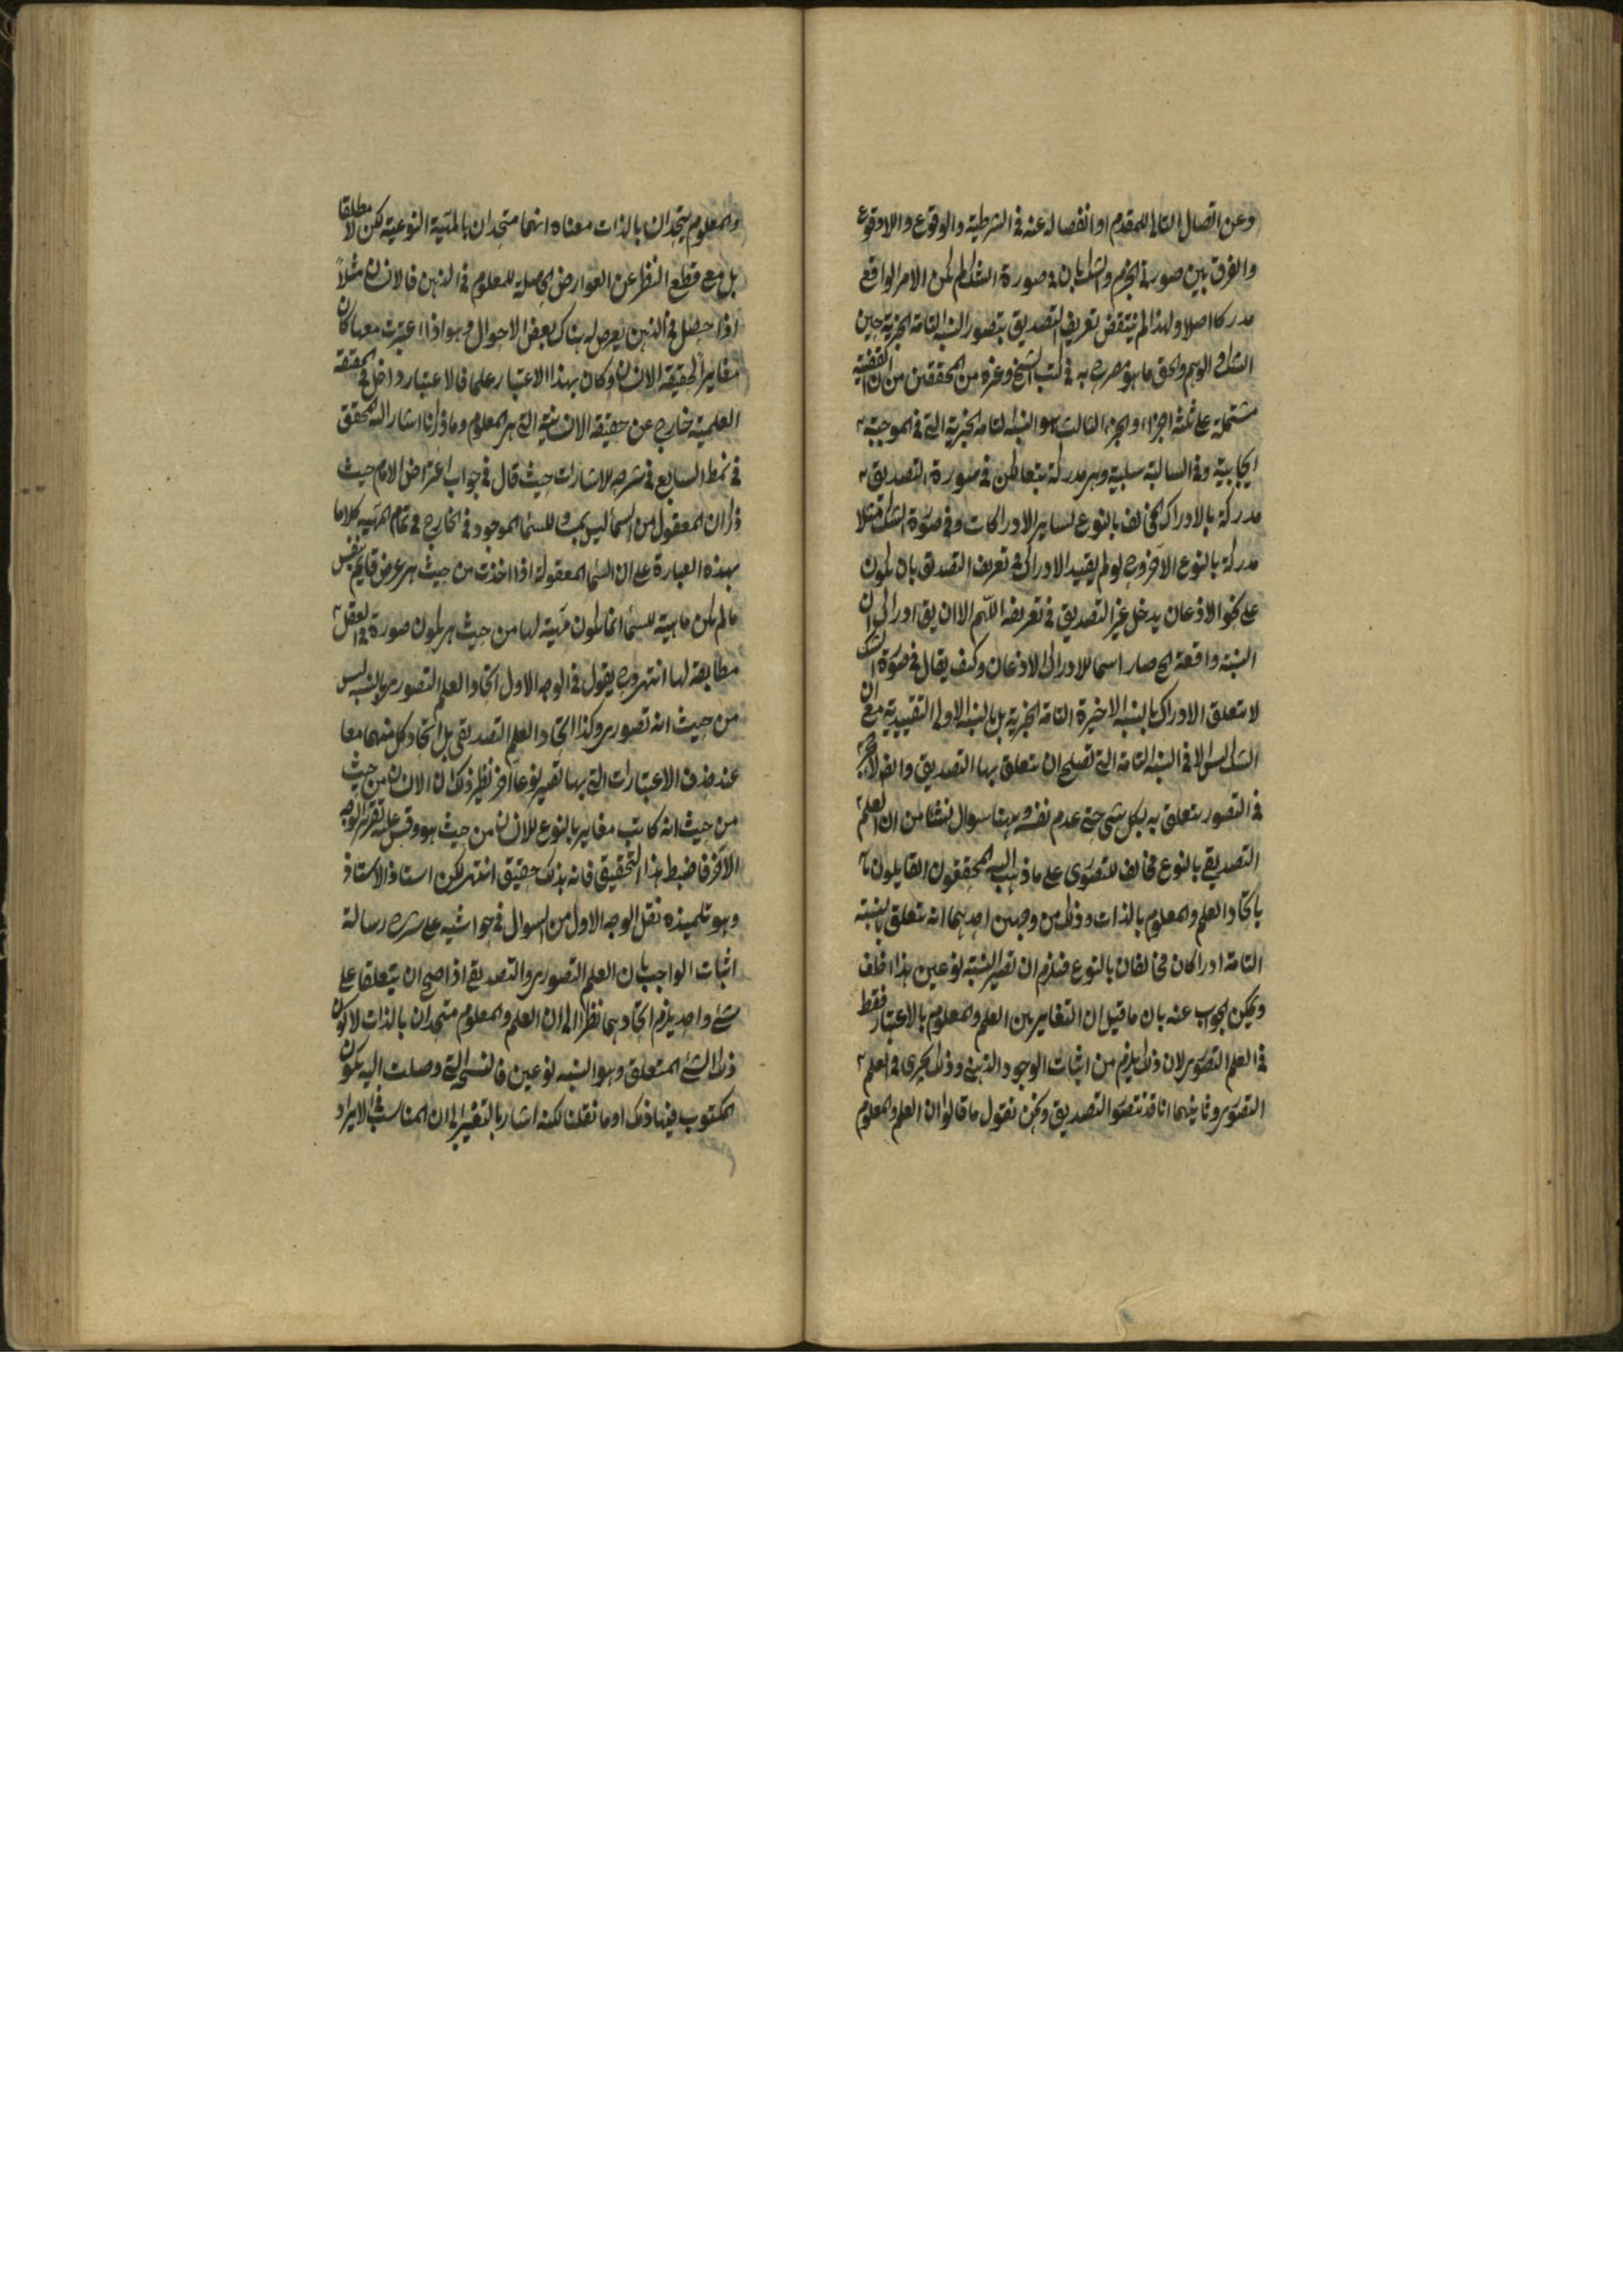 وعن اتصال التالى للمقدم او انفصاله عنه فى الشرطية والوقوع واللاوقوع
والفرق بين صورتى الجزم والشك بان فى صورة الشك لم يكن الامر الواقع
مدركا اصلا ولهذا لم ينتقض تعريف التصديق بتصور النسبة التامة الخبرية حين
الشك والوهم والحق ما هو مصرح به فى كتب الشيخ وغيره من المحققين من ان القضية
مشتملة على ثلثة اجزاء والجزء الثالث هو النسبة التامة الخبرية التى فى الموجبة
ايجابية وفى السالبة سلبية وهى مدركة بتعاطن فى صورة التصديق
مدركة بالادراك المخالف بالنوع لساير الادراكات وفى صورة الشك مثلا
مدركة بالنوع الآخر وح لو لم يقيد الادراك فى تعريف التصديق بان يكون
على نحو الاذعان يدخل غير التصديق فى تعريفه اللهم الا ان يق ادراك ان
النسبة واقعة الخ صار اسما للادراك الاذعان وكيف يقال فى صورة الشك
لا يتعلق الادراك بالنسبة الاخيرة التامة الخبرية بل بالنسبة الاولى التقييدية مع ان
الشك ليس الا فى النسبة التامة التى تصلح ان يتعلق بها التصديق وايض لا حجر
فى التصور يتعلق به بكل شئ حتى عدم نفسه وههنا سوال نشأ من ان العلم
التصديقى بالنوع مخالف للتصورى على ما ذهب اليه المحققون القايلون
باتحاد العلم والمعلوم بالذات وذلك من وجهين احدهما انه يتعلق بالنسبة
التامة ادراكان مخالفان بالنوع فيلزم ان تصير النسبة نوعين هذا خلف
ويمكن الجواب عنه بان ما قيل ان التغاير بين العلم والمعلوم بالاعتبار فقط
فى العلم التصورى لان ذلك يلزم من اثبات الوجود الذهنى وذلك يجرى فى العلم
التصورى وثانيهما انا قد نتصور التصديق ونحن نقول ما قالوا ان العلم والمعلوم
والمعلوم يتحدان بالذات معناه انهما متحدان بالمهية النوعية لكن لا مطلقا
بل مع قطع النظر عن العوارض الحاصلة للمعلوم فى الذهن فالانسان مثلاً
اذا حصل فى الذهن يعرض له هناك بعض الاحوال وهو اذا اعتبرت معها كان
مغايراً لحقيقة الانسان وكان بهذا الاعتبار علما فالاعتبار داخل فى الحقيقة
العلمية خارج عن حقيقة الانسانية التى هى المعلوم وما ذكرنا اشار اليه المحقق
فى نمط السابع فى شرحه للاشارات حيث قال فى جواب اعتراض الامام حيث
ذكر ان المعقول من السماء ليس بمساو للسماء الموجود فى الخارج فى تمام المهية كلاما
بهذه العبارة على ان السماء المعقولة اذا اخذت من حيث هى عرض قايم بنفس
ما لم يكن ماهية للسماء انما يكون مهية لها من حيث هى يكون صورة فى العقل
مطابقة لها انتهى وح يقول فى الوجه الاول اتحاد العلم التصورى بالنسبة ليس
من حيث انه تصورى وكذا اتحاد العلم التصديقى بل اتحاد كل منهما معا
عند حذف الاعتبارات التى بها تصير نوعا آخر نظير ذلك ان الانسان من حيث
من حيث انه كاتب مغاير بالنوع للانسان من حيث هو وقس عليه تقرير الوجه
الآخر فاضبط هذا التحقيق فانه بذلك حقيق انتهى لكن استاذ الاستاذ
وهو تلميذه نقل الوجه الاول من السوال فى حواشيه على شرح رسالة
اثبات الواجب بان العلم التصورى والتصديقى اذا صح ان يتعلقا على
شئ واحد يلزم اتحادهما نظرا الى ان العلم والمعلوم متحدان بالذات لا كون
ذلك الشئ المتعلق وهو النسبة نوعين فالنسخ التى وصلت اليه يكون
المكتوب فيها ذلك او ما نقلنا لكنه اشار بالتغيير الى ان المناسب فى الايراد